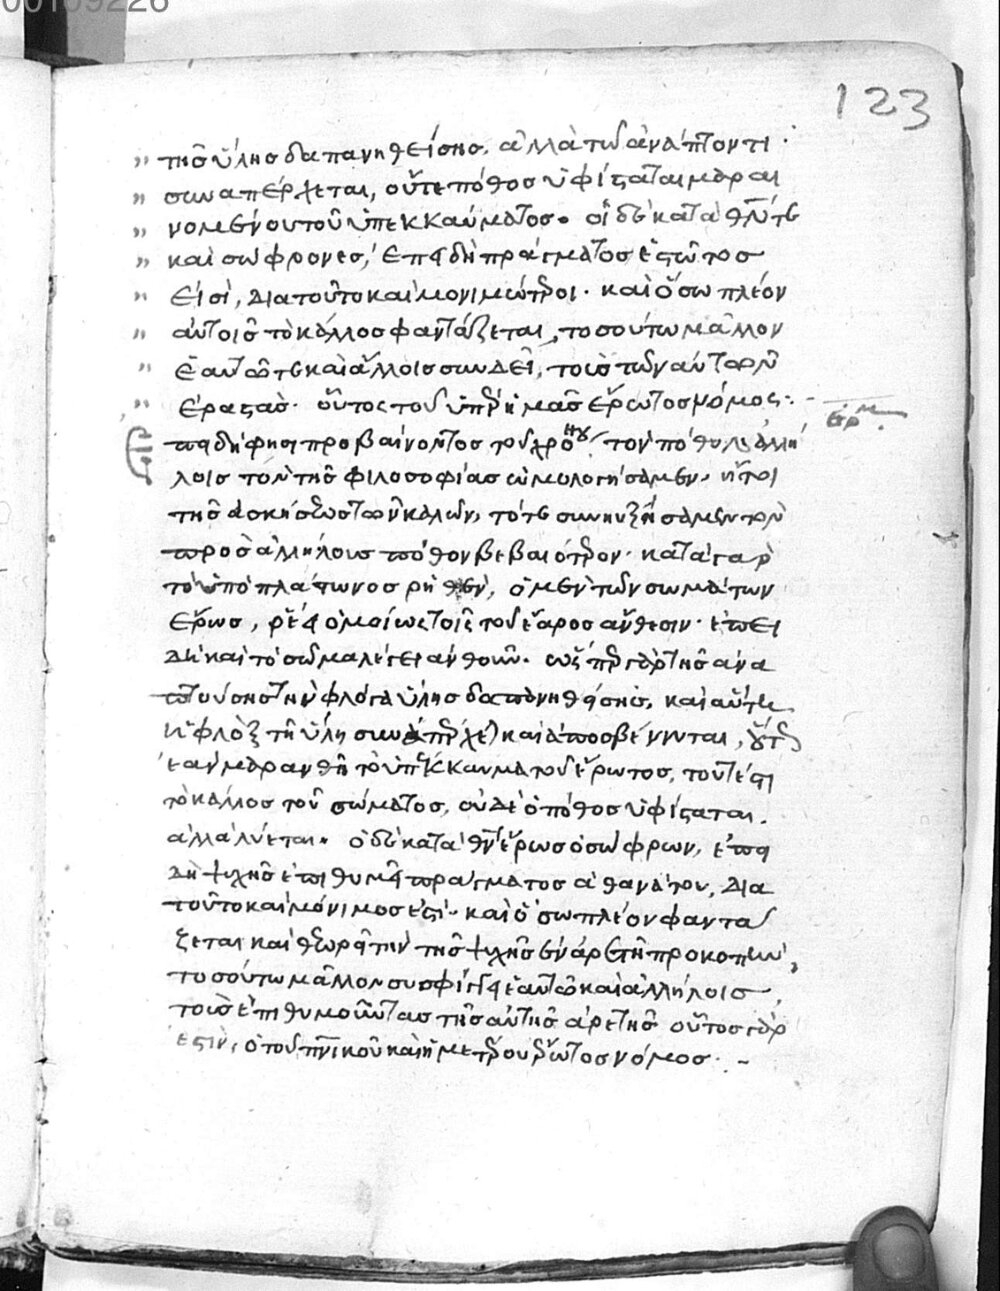 00109226
123
τῆς ὕλης δαπανηθείσης, ἀλλὰ τῶ ἀνάπτοντι
συναπέρχεται, οὔτε πόθος ὑφίσταται μαραι
νομένου τοῦ ὑπεκκαύματος. οἱ δὲ κατὰ θν τε
καὶ σώφρονες, ἐπειδὴ πράγματος ἑστῶτος
εἰσὶ, διατοῦτο καὶ μονιμώτεροι. καὶ ὅσω πλέον
αὐτοῖς τὸ κάλλος φαντάζεται, τοσούτω μᾶλλον
ἑαυτῶ τε καὶ ἀλλήλοις συνδεῖ, τοὺς τῶν αὐτῶν
ἐραστάς. οὗτος τοῦ ὑπὲρ ἡμᾶς ἔρωτος νόμος.
ἑρμ
ἐπειδή φησι προβαίνοντος τοῦ χρόνου, τὸν πόθον ἀλλή
λοις τὸν τῆς φιλοσοφίας ὡμολογήσαμεν, ἤτοι
τῆς ἀσκήσεως τῶν καλῶν, τότε συνηυξήσαμεν τὸν
προς ἀλλήλους πόθον βεβαιότερον. κατὰ γὰρ
τὸ ὑπὸ πλάτωνος ῥηθὲν, ὁ μὲν τῶν σωμάτων
ἔρως, ῥέει ὁμοίως τοῖς τοῦ ἔαρος ἄνθεσιν. ἐπει
δὴ καὶ τὸ σῶμα λέγει ἀνθοῦν. ὥσπερ γὰρ τῆς ἀνα
πτούσης τὴν φλόγα ὕλης δαπανηθείσης, καὶ αὐτὴ
ἡ φλὸξ τῆ ὕλη συναπέρχεται καὶ ἀποσβέννυται, οὕτως
ἐὰν μαρανθῆ τὸ ὑπέκκαυμα τοῦ ἔρωτος, τουτέστι
τὸ κάλλος τοῦ σώματος, οὐδὲ ὁ πόθος ὑφίσταται.
ἀλλὰ λύεται. ὁ δὲ κατὰ θν ἔρως ὁ σώφρων, ἐπει
δὴ ψυχῆς ἐπιθυμεῖ πράγματος ἀθανάτου, δια
τοῦτο καὶ μόνιμος ἐστι. καὶ ὅσω πλέον φαντά
ζεται καὶ θεωρεῖ τὴν τῆς ψυχῆς ἐν ἀρετῆ προκοπὴν,
τοσούτω μᾶλλον συσφίγγει ἑαυτῶ καὶ ἀλλήλοις,
τοὺς ἐπιθυμοῦντας τῆς αὐτῆς ἀρετῆς. οὗτος γάρ
ἐστιν, ὁ τοῦ πνικοῦ καὶ ἡμετέρου ἔρωτος νόμος.